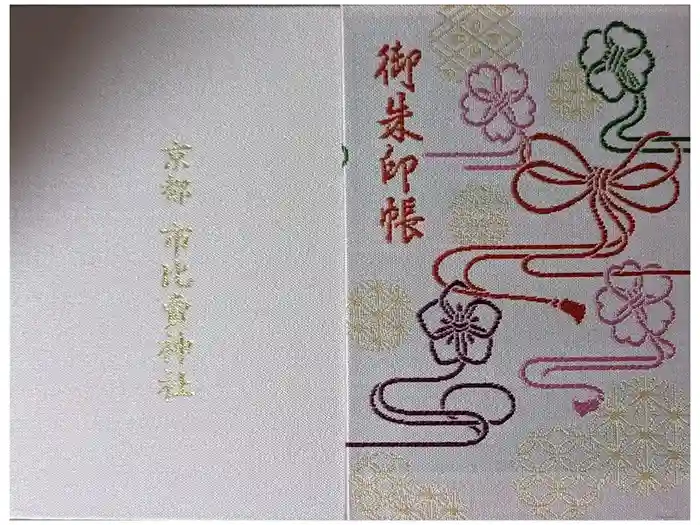 御朱印帳
京都 市比賣神社